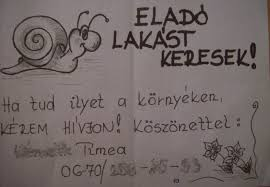 ELADÓ
LAKÁST
KERESEK!
Ha tud ilyet a környéken,
KÉREM HÍVJON! Köszönettel:
Tímea
06-70/